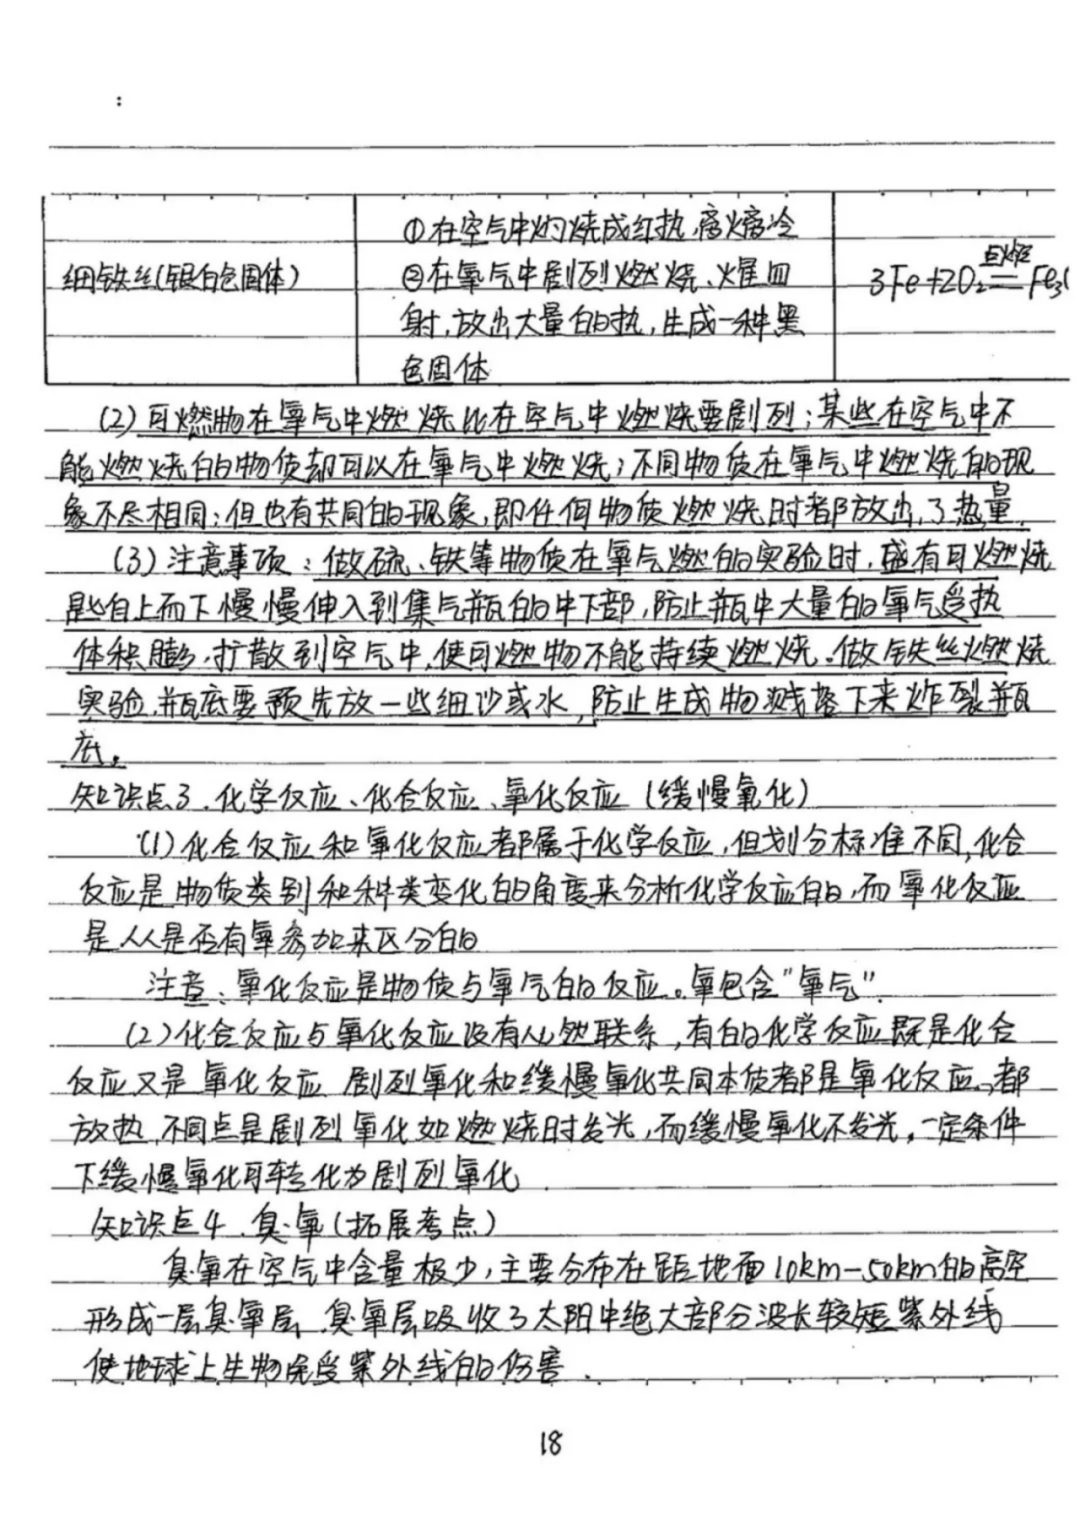 :
①在空气中灼烧成红热,离火焰冷
细铁丝(银白色固体)
②在氧气中剧烈燃烧、火星四
射,放出大量的热,生成一种黑
色固体
点燃
3Fe+2O₂══Fe₃(
(2)可燃物在氧气中燃烧比在空气中燃烧要剧烈;某些在空气中不
能燃烧的物质却可以在氧气中燃烧;不同物质在氧气中燃烧的现
象不尽相同;但也有共同的现象,即任何物质燃烧时都放出了热量.
(3)注意事项:做硫、铁等物质在氧气燃的实验时,盛有可燃烧
匙自上而下慢慢伸入到集气瓶的中下部,防止瓶中大量的氧气受热
体积膨,扩散到空气中,使可燃物不能持续燃烧。做铁丝燃烧
实验,瓶底要预先放一些细沙或水,防止生成物溅落下来炸裂瓶
底。
知识点3.化学反应、化合反应、氧化反应(缓慢氧化)
(1)化合反应和氧化反应都属于化学反应,但划分标准不同,化合
反应是物质类别和种类变化的角度来分析化学反应的,而氧化反应
是从是否有氧参加来区分的
注意:氧化反应是物质与氧气的反应。氧包含"氧气".
(2)化合反应与氧化反应没有必然联系,有的化学反应既是化合
反应又是氧化反应 剧烈氧化和缓慢氧化共同本质都是氧化反应,都
放热,不同点是剧烈氧化如燃烧时发光,而缓慢氧化不发光,一定条件
下缓慢氧化可转化为剧烈氧化.
知识点4.臭氧(拓展考点)
臭氧在空气中含量极少,主要分布在距地面10km—50km的高空
形成一层臭氧层,臭氧层吸收了太阳中绝大部分波长较短紫外线,
使地球上生物免受紫外线的伤害.
18